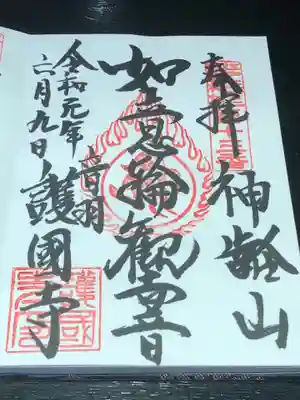 奉拝 神齢山
如意輪観世音
音羽 護國寺
令和元年
六月九日